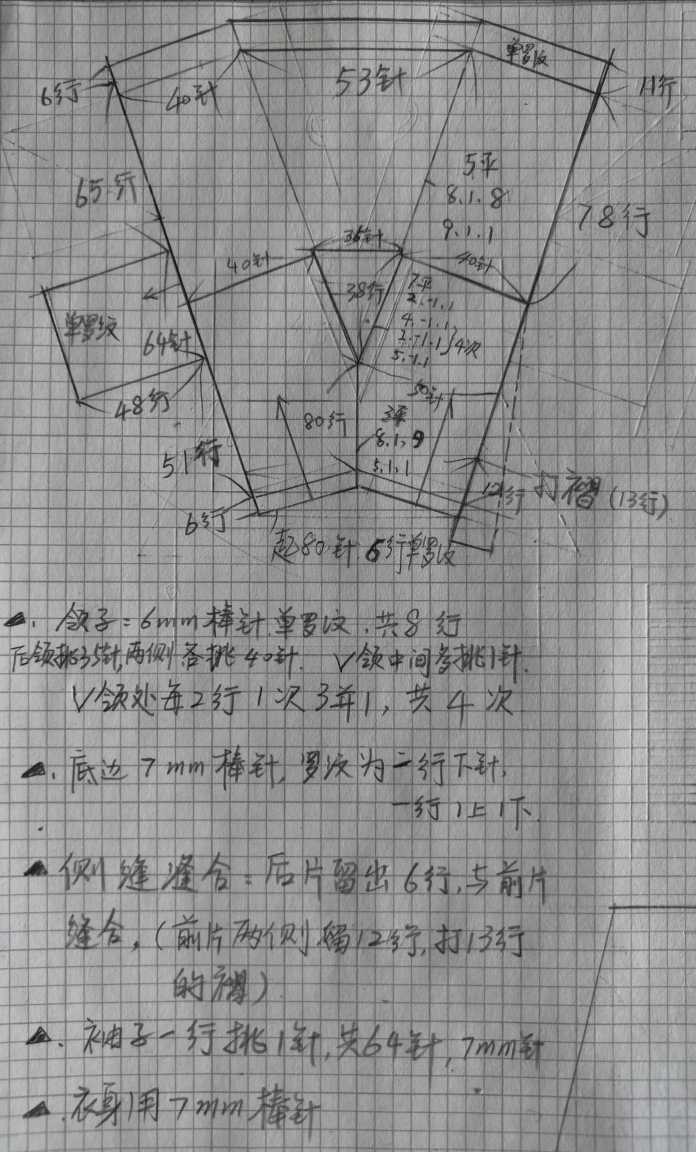 单罗纹
6行
40针
53针
11行
5平
8.1.8
9.1.1
65行
78行
36针
40针
40针
38行
7平
2.-1.1
4.-1.1
2.-1.1
5.-1.1
}4次
单罗纹
64针
48行
50针
80行
3平
8.1.9
5.1.1
51行
6行
12行
打褶(13行)
起80针 6行单罗纹
▲. 领子=6mm棒针.单罗纹.共8行
后领挑35针,两侧各挑40针. V领中间多挑1针.
V领处每2行1次3并1,共4次
▲. 底边7mm棒针,罗纹为一行下针,
一行1上1下.
▲ 侧缝缝合:后片留出6行,与前片
缝合,(前片两侧留12行,打13行
的褶)
▲. 袖子一行挑1针,共64针,7mm针
▲.衣身用7mm棒针